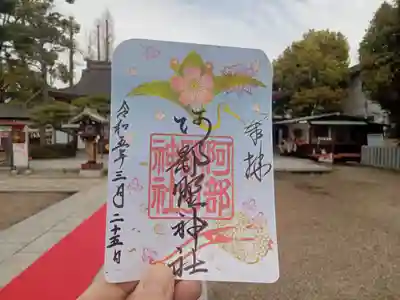 奉拝
阿部野神社
阿部
神社
令和五年三月二十五日